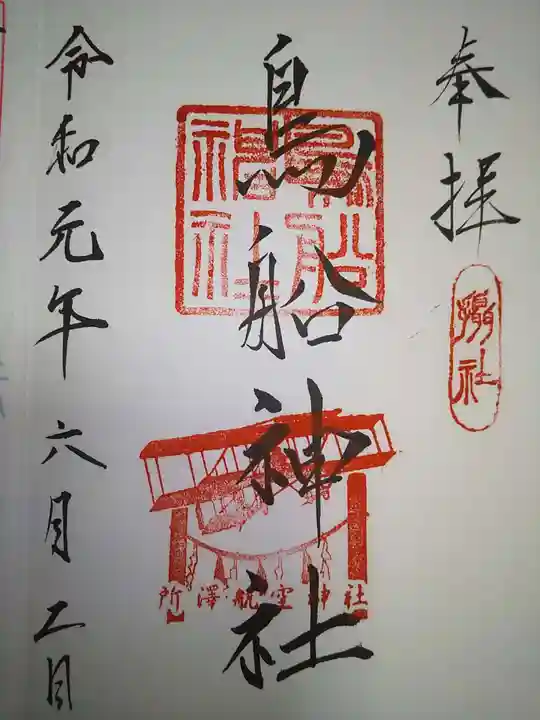 奉拝
摂社
鳥船神社
鳥船神社
所澤航空神社
令和元年六月二日